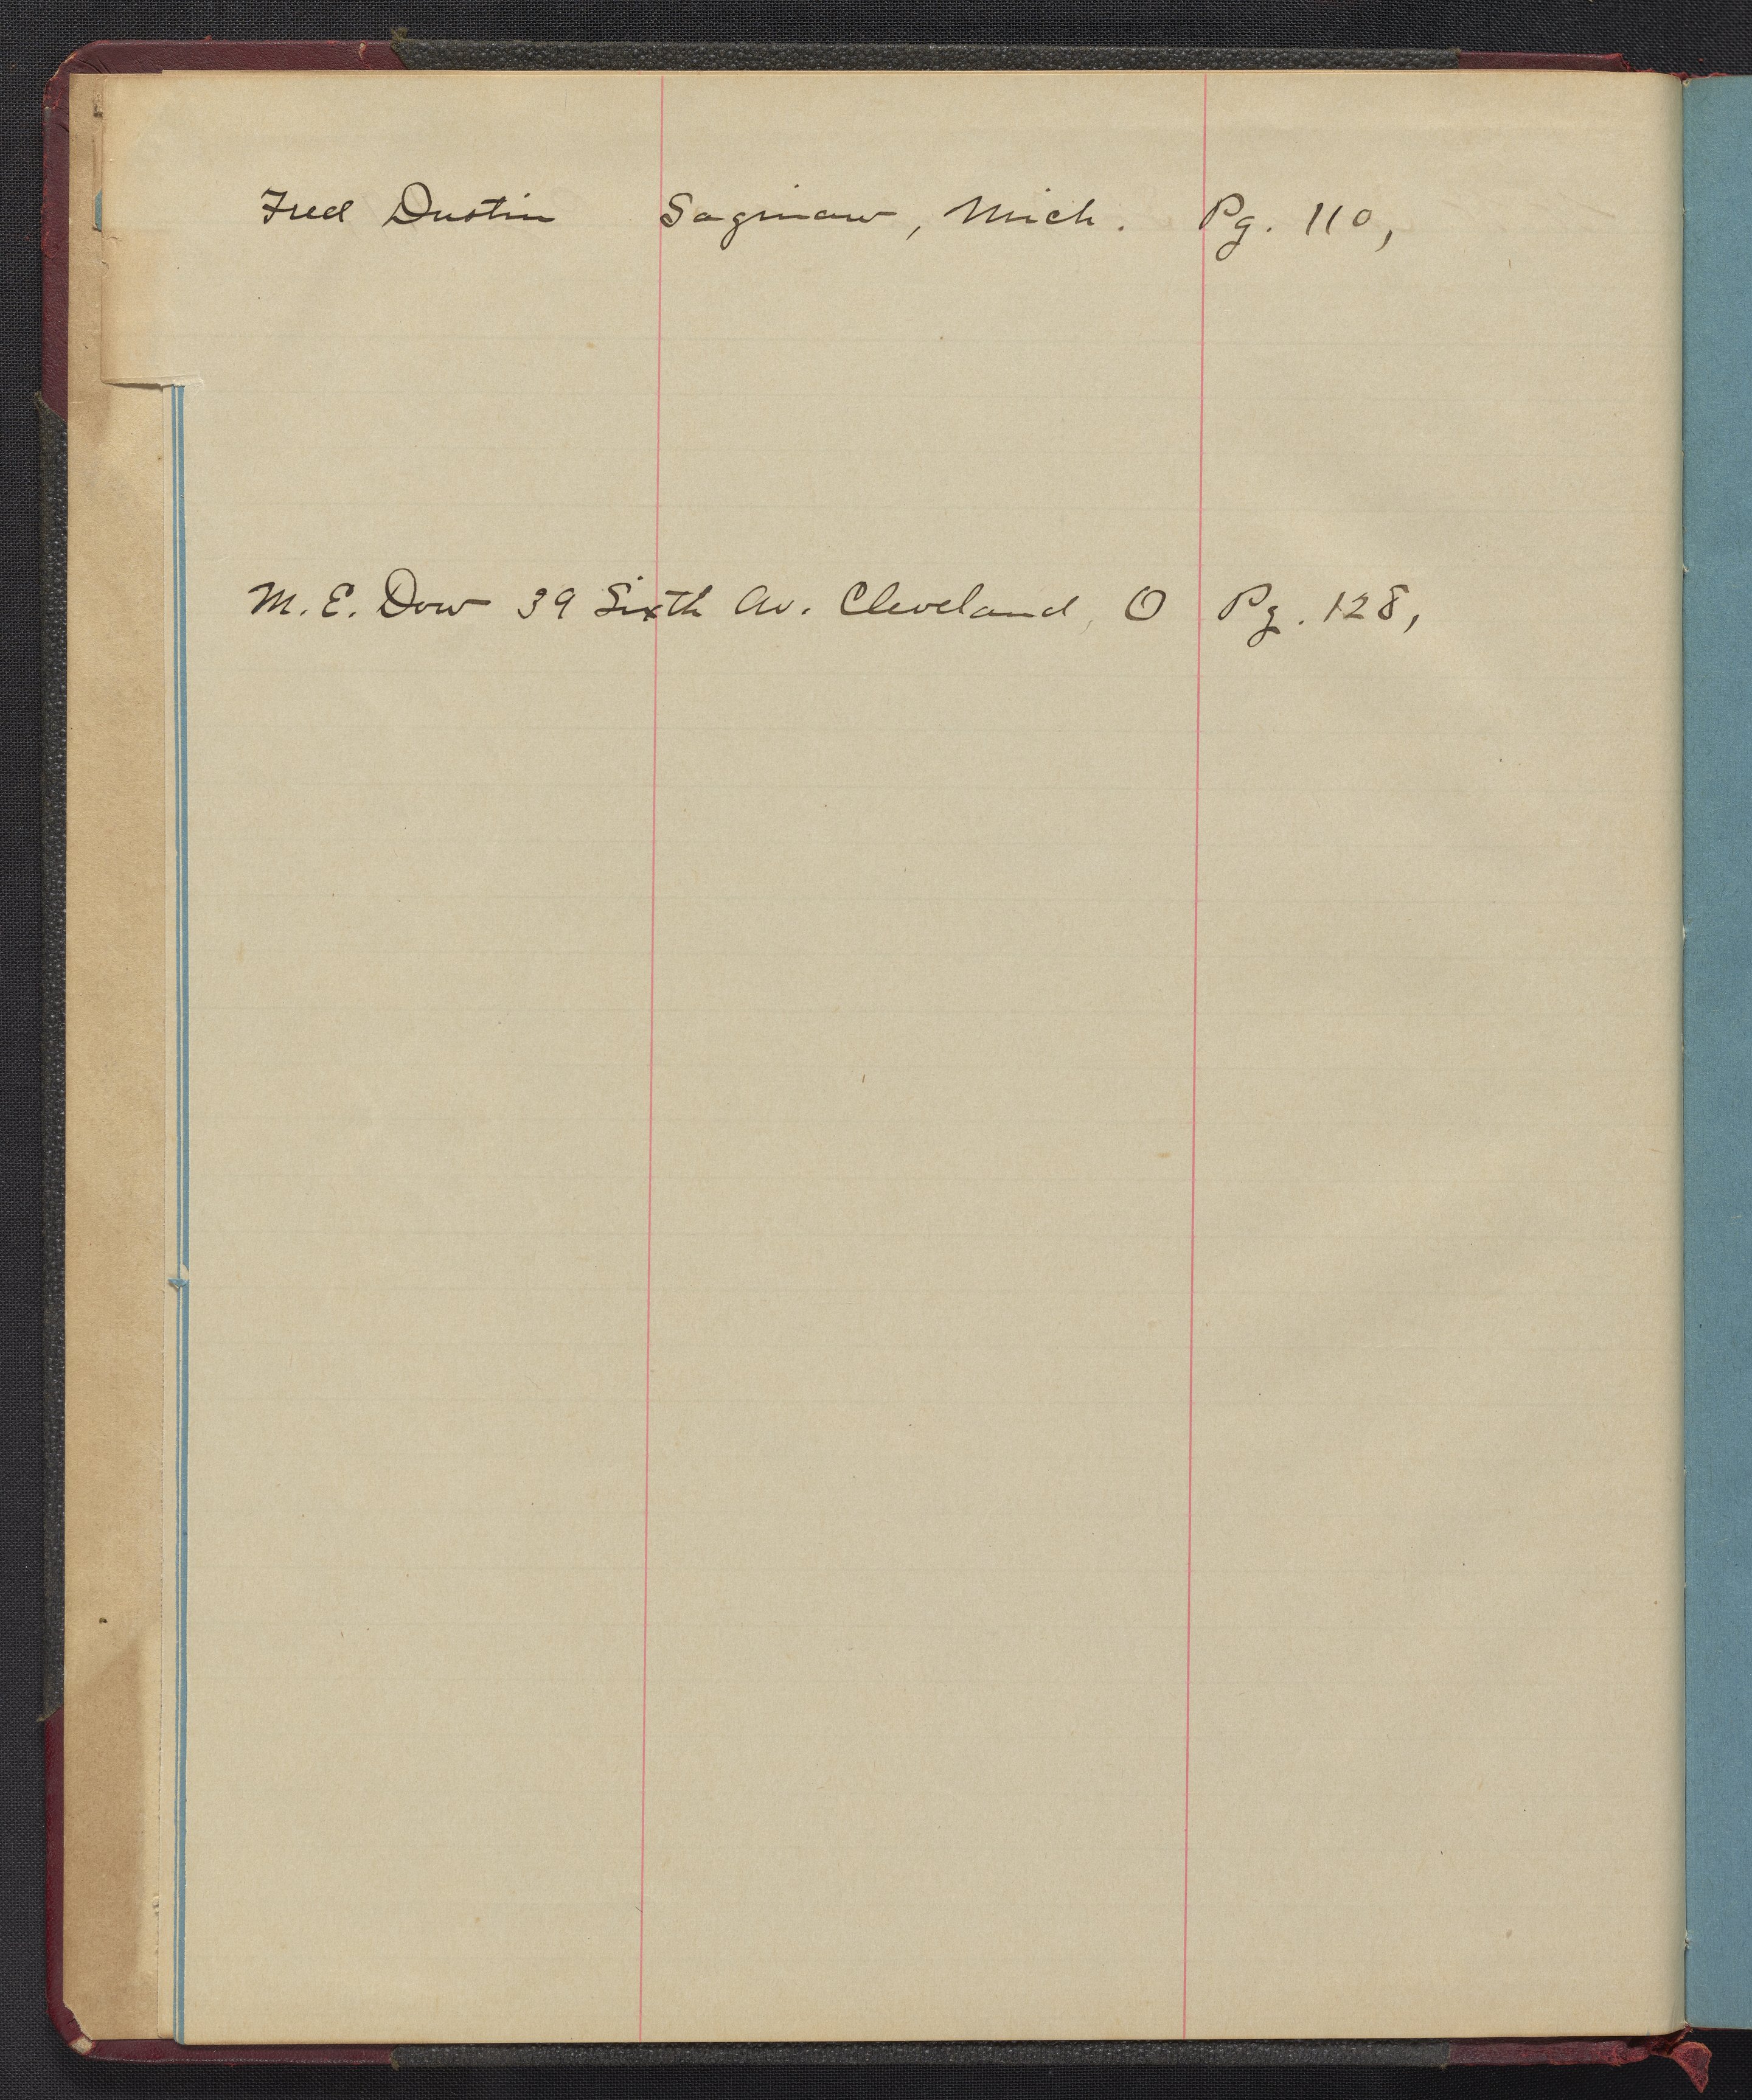 Fred Dustin Saginaw, Mich. Pg. 110,
M. E. Dow 39 Sixth Av. Cleveland, O Pg. 128,